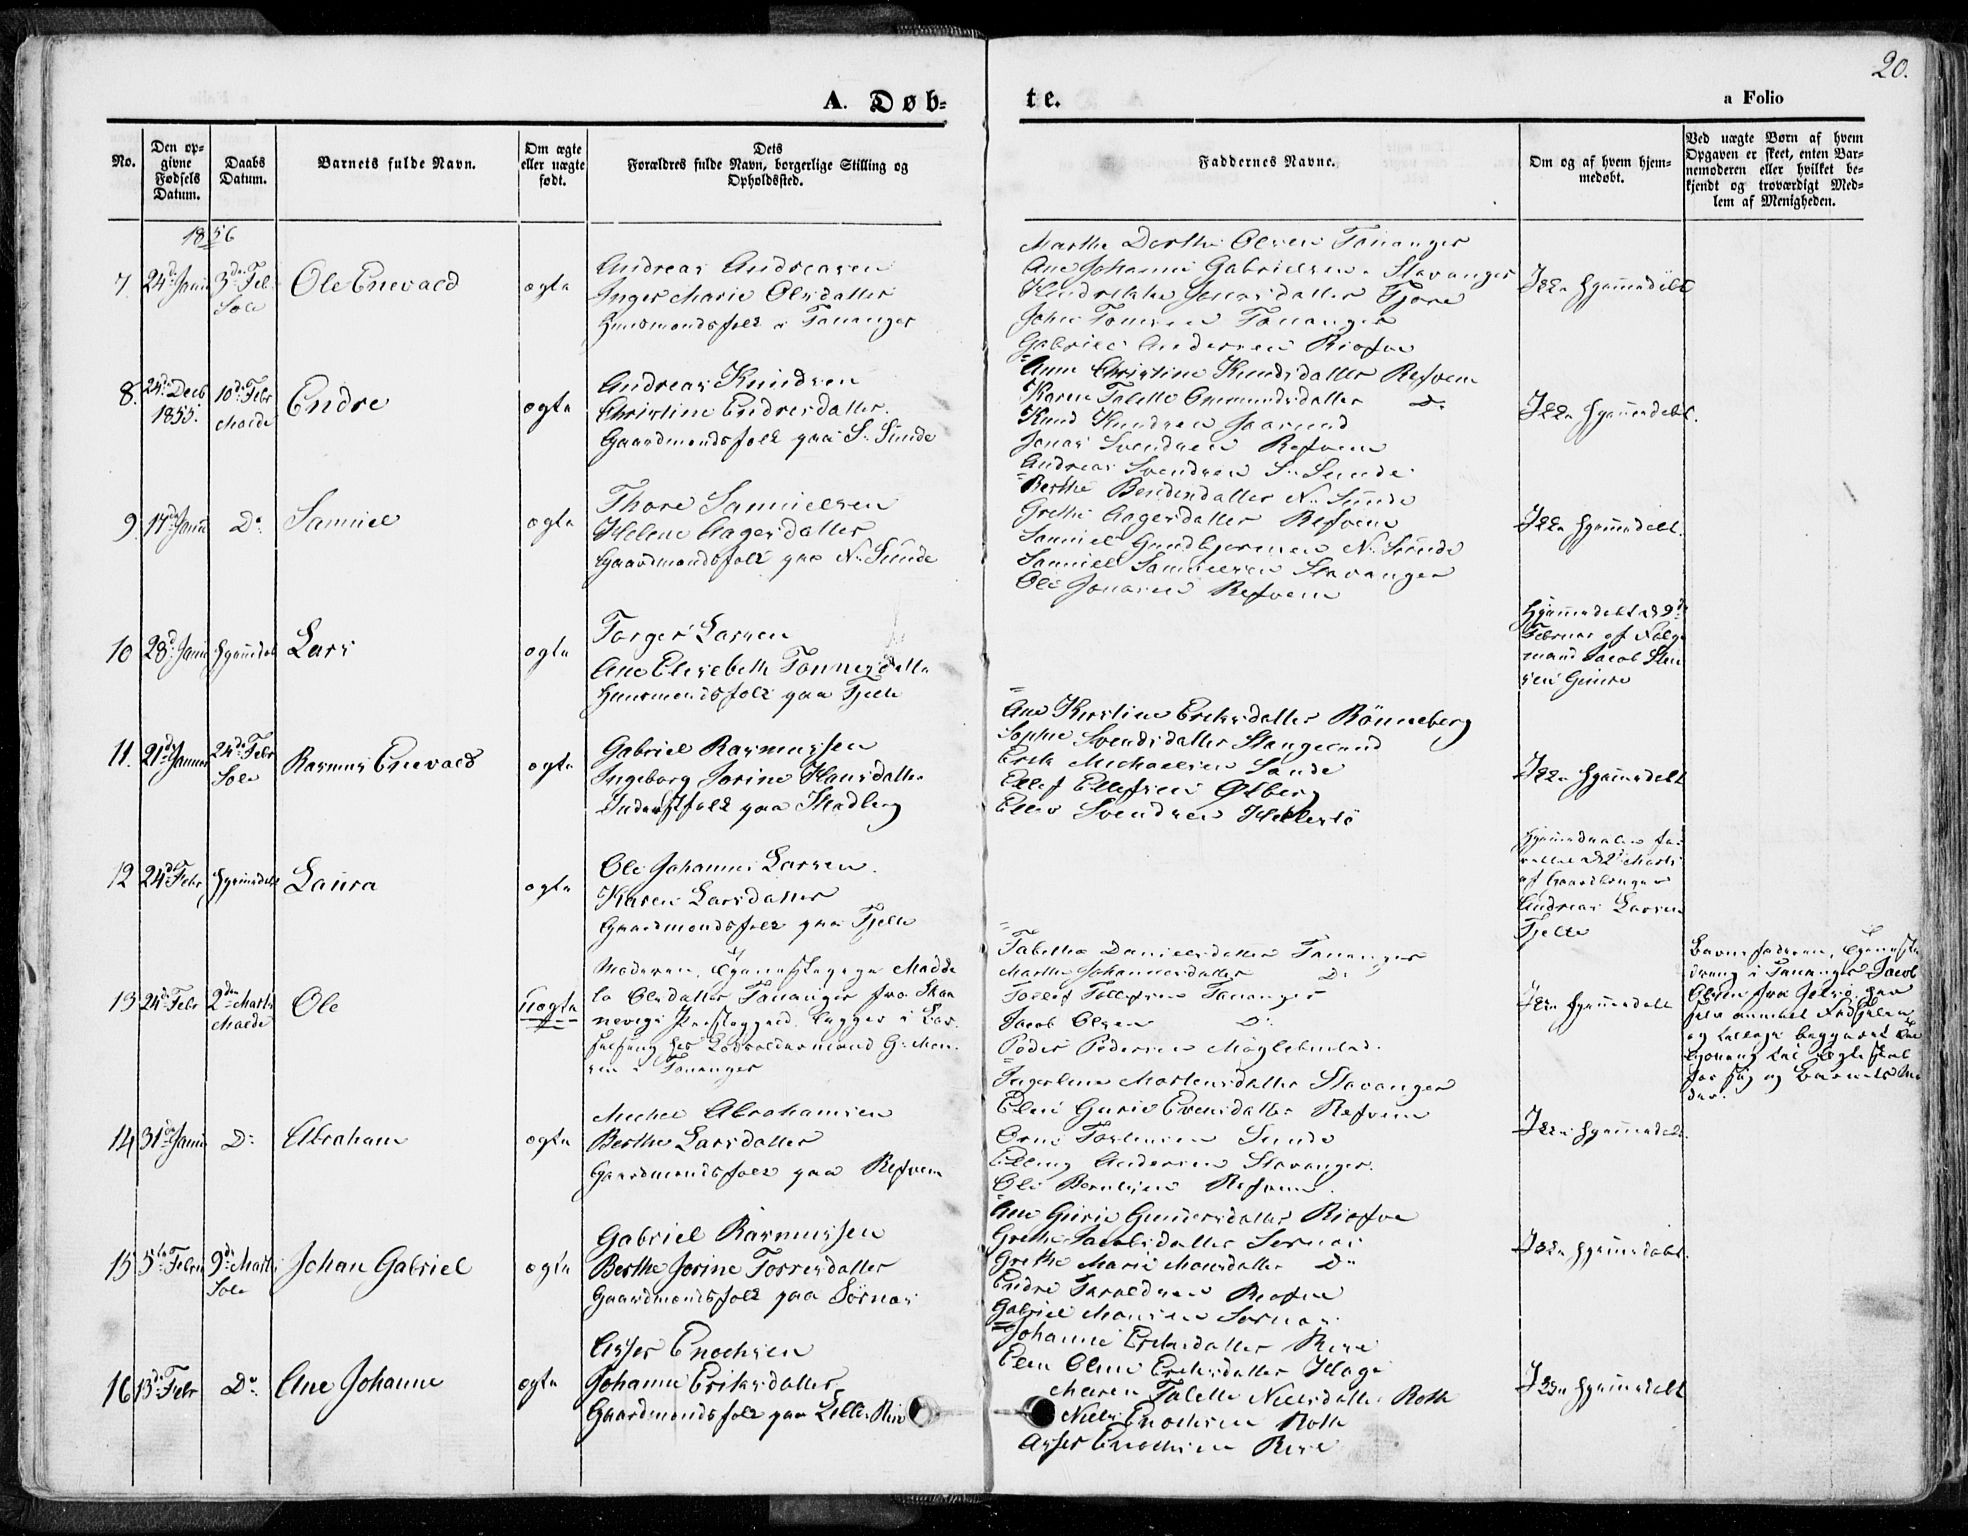 20.
A. Døb=
te.
a Folio
No.
Den op=
givne
Fødsels
Datum.
Daabs
Datum.
Barnets fulde Navn.
Om ægte
eller uægte
født.
Dets
Forældres fulde Navn, borgerlige Stilling og
Opholdssted.
Faddernes Navne.
Om og af hvem hjem=
medøbt.
Ved uægte Børn af hvem
Opgaven er skeet, enten Bar=
nemoderen eller hvilket be=
kjendt og troværdigt Med=
lem af Menigheden.
1856
7. 24de Janu 3die Feb. Sole
Ole Enevald
ægte
Andreas Andreasen
Inger Marie Olsdatter
Huusmandsfolk i Tananger
Marthe Dorthe Olsen Tananger
Ane Johanne Gabrielsen Stavanger
Hendrikke Jonasdatter Tjore
John Tonnsen Tananger
Gabriel Andersen Risfoe
Ikke hjemmedøbt
8. 24de Decb 1855. 10de Febr Malde
Endre
ægte
Andreas Knudsen
Christine Endresdatter.
Gaardmandsfolk paa S. Sunde
Anne Christine Knudsdatter Refvem
Karen Talette Ommundsdatter Do
Knud Knudsen Jaasund
Jonas Svendsen Refvem
Andreas Svendsen S. Sunde
Ikke hjemmedøbt.
9. 17de Janu Do
Samuel
ægte
Thore Samuelsen
Helene Aagesdatter
Gaardmandsfolk paa N. Sunde
Berthe Bendixdatter N. Sunde
Grethe Aagesdatter Refvem
Samuel Gundbjørnsen N. Sunde
Samuel Samuelsen Stavanger
Ole Jonasen Refvem
Ikke hjemmedøbt.
10 28de Janu hjemmedøb
Lars
ægte
Torger Larsen
Ane Elisebeth Tonnesdatter
Huusmandsfolk paa Tjelte
Hjemmedøbt d 9de
Februar af
mand Jacob
11. 21de Januar 24de Febr Sole
Rasmus Enevald
ægte
Gabriel Rasmussen
Ingeborg Jorine Hansdatter
Inderstfolk paa Stadberg
Ane Kirstine Eriksdatter Rönneberg
Sophie Svendsdatter Stangeland
Erik Michaelsen Sande
Ellef Ellefsen Ølberg
Elias Svendsen
Ikke hjemmedøbt
12 24de Febr hjemmedøbt
Laura
ægte
Ole Johannes Larsen.
Karen Larsdatter
Gaardmandsfolk paa Tjelte
Hjemmedaaben for
rettet d 2den Marts
af Gaardbruger
Andreas Larsen
Tjelte
13 24de Febr 2den Marts Malde
Ole
Uægte
Moderen, Tjenestepige Madde
la Olsdatter Tananger fra Skaa
nevigs Præstegjeld, ligger i Bar
selseng hos Lodsoldermand G. Mon
sen i Tananger
Tabetha Danielsdatter Tananger
Marthe Johannesdatter Do
Tollef Tollefsen Tananger
Jacob Olsen Do
Peder Pedersen Møglebustad.
Ikke hjemmedøbt
Barnefaderen, Tjeneste
dreng i Tananger Jacob
Olsen fra Jelsø, har
selv anmeldt Fødselen
og tillige begjæret
til Ægteskab
for sig og Barnets Mo
der.
14 31te Janu Do
Abraham
ægte
Michel Abrahamsen
Berthe Larsdatter
Gaardmandsfolk paa Refvem
Ingerlene Mortensdatter Stavanger
Eline Gurie Evensdatter Refvem
Sunde
Elling Andersen Stavanger.
Ole Berntsen Refvem.
Ikke hjemmedøbt.
15 5te Febru 9de Marts Sole
Johan Gabriel
ægte
Gabriel Rasmussen
Berthe Jorine Torresdatter
Gaardmandsfolk paa Sörnæs
Ane Gurie Gundersdatter Risfoe
Grethe Jacobsdatter Sornæs
Grethe Marie Monsdatter Do
Endre Taraldsen Risfoe
Gabriel Monsen Sornæs
Ikke hjemmedøbt.
16 13de Febr Do
Ane Johanne
ægte
Asser Enochsen
Johanne Eriksdatter
Gaardmandsfolk paa Lille Rese
Johanne Eriksdatter Rese
Elen Oline Eriksdatter Hage
Maren Talette Nielsdatter Roth
Niels Enochsen Roth
Asser Enochsen Rese
Ikke hjemmedøbt